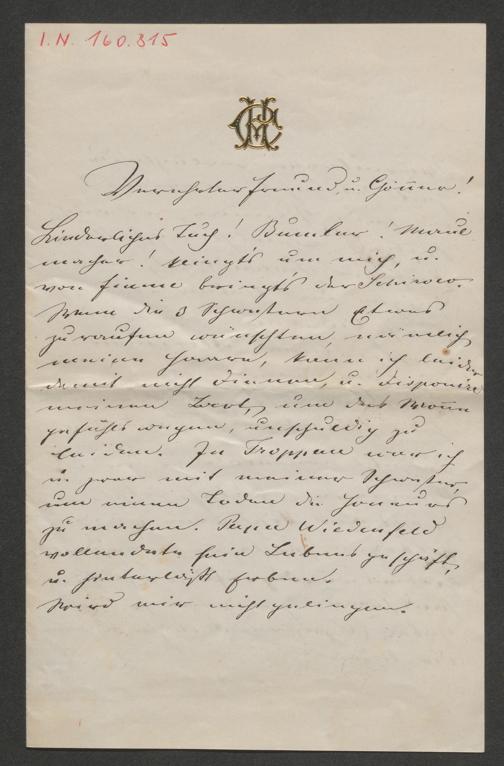 I. N. 160.815
Verehrter Freund, u. Gönner!
Liederliches Tuch! Bumler! Maul
macher! klingt's um mich, u.
von Fiume bringt's der Schirocco.
Wenn die 3 Schwestern Etwas
zu raufen wünschten, nämlich
meine Haare, kann ich leider
damit nicht dienen, u. disponire
meinen Bart, um des Wonne
gefühls wegen, unschuldig zu
leiden. In Troppau war ich
u. zwar mit meiner Schwester,
um einem Todten die Honeurs
zu machen. Papa Wiedenfeld
vollendete sein Lebensgeschäft,
u. hinterläßt Erben.
Wird mir nicht gelingen.